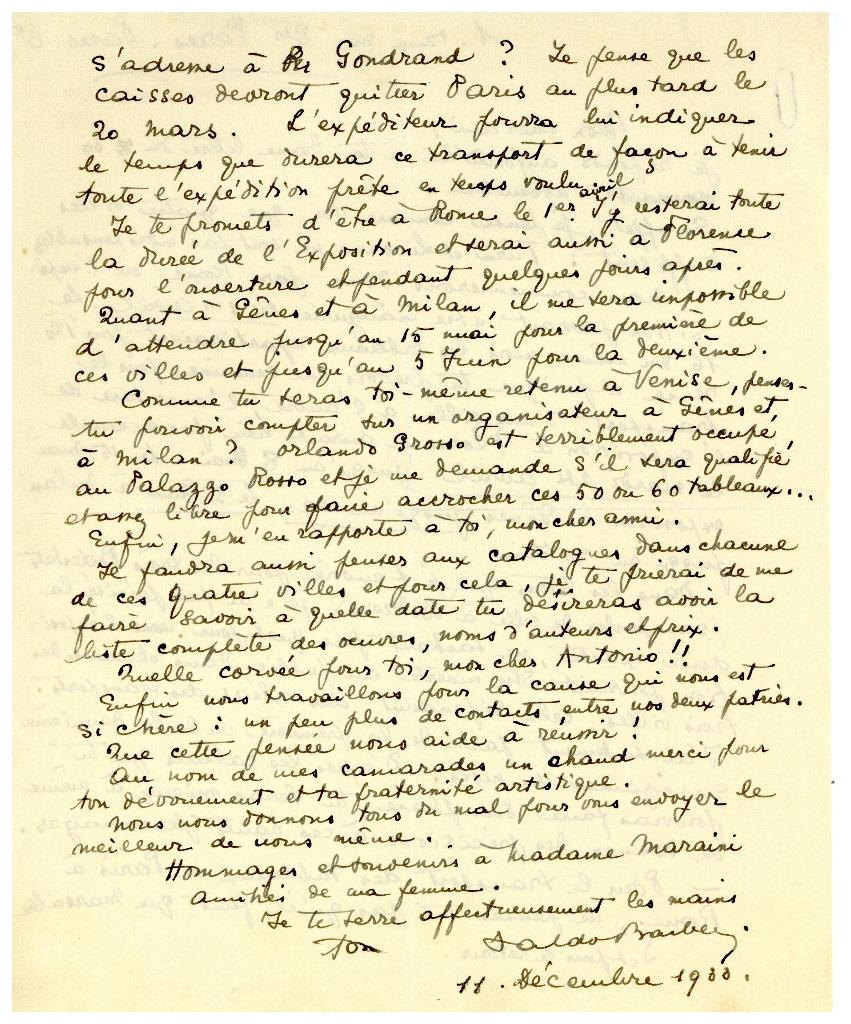 s'adresse à Gondrand ? Je pense que les
caisses devront quitter Paris au plus tard le
20 mars. L'expéditeur pourra lui indiquer
le temps que durera ce transport de façon à tenir
toute l'expédition prête en temps voulu.
Je te promets d'être à Rome le 1er avril. J'y resterai toute
la durée de l'Exposition et serai aussi à Florence
pour l'ouverture et pendant quelques jours après.
Quant à Gênes et à Milan, il me sera impossible
d'attendre jusqu'au 15 mai pour la première de
ces villes et jusqu'au 5 Juin pour la deuxième.
Comme tu seras toi-même retenu à Venise, penses-
tu pouvoir compter sur un organisateur à Gênes et,
à Milan ? Orlando Grosso est terriblement occupé,
au Palazzo Rosso et je me demande s'il sera qualifié
et assez libre pour faire accrocher ces 50 ou 60 tableaux...
Enfin, je m'en rapporte à toi, mon cher ami.
Il faudra aussi penser aux catalogues dans chacune
de ces quatre villes et pour cela, je te prierai de me
faire savoir à quelle date tu désireras avoir la
liste complète des oeuvres, noms d'auteurs et prix.
Quelle corvée pour toi, mon cher Antonio !!
Enfin nous travaillons pour la cause qui nous est
si chère : un peu plus de contacts entre nos deux patries.
Que cette pensée nous aide à réussir !
Au nom de mes camarades un chaud merci pour
ton dévouement et ta fraternité artistique.
Nous nous donnons tous du mal pour vous envoyer le
meilleur de nous même.
Hommages et souvenirs à Madame Maraini
amitiés de ma femme.
Je te serre affectueusement les mains
ton Daldo Barbey.
11. Décembre 1933.